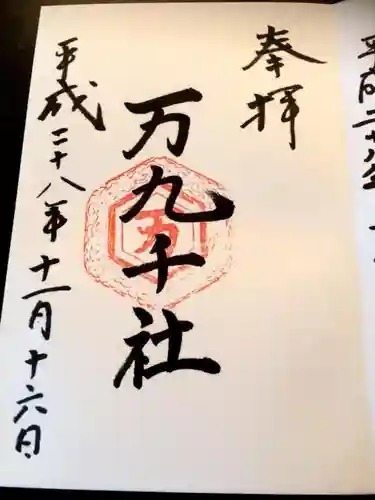 奉拝
万九千社
平成二十八年十一月十六日
万
平成二十八年